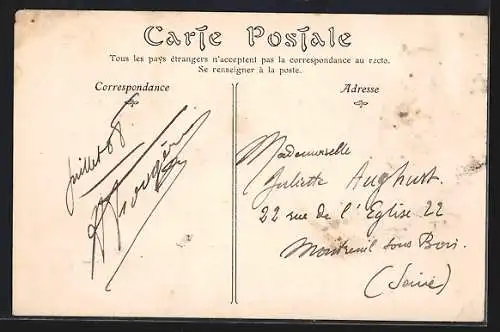 Carte Postale
Tous les pays étrangers n'acceptent pas la correspondance au recto.
Se renseigner à la poste.
Correspondance
Adresse
Juillet 08.
Mademoiselle
Juliette Aughust.
22 rue de l'Eglise 22
Montreuil sous Bois.
(Seine)